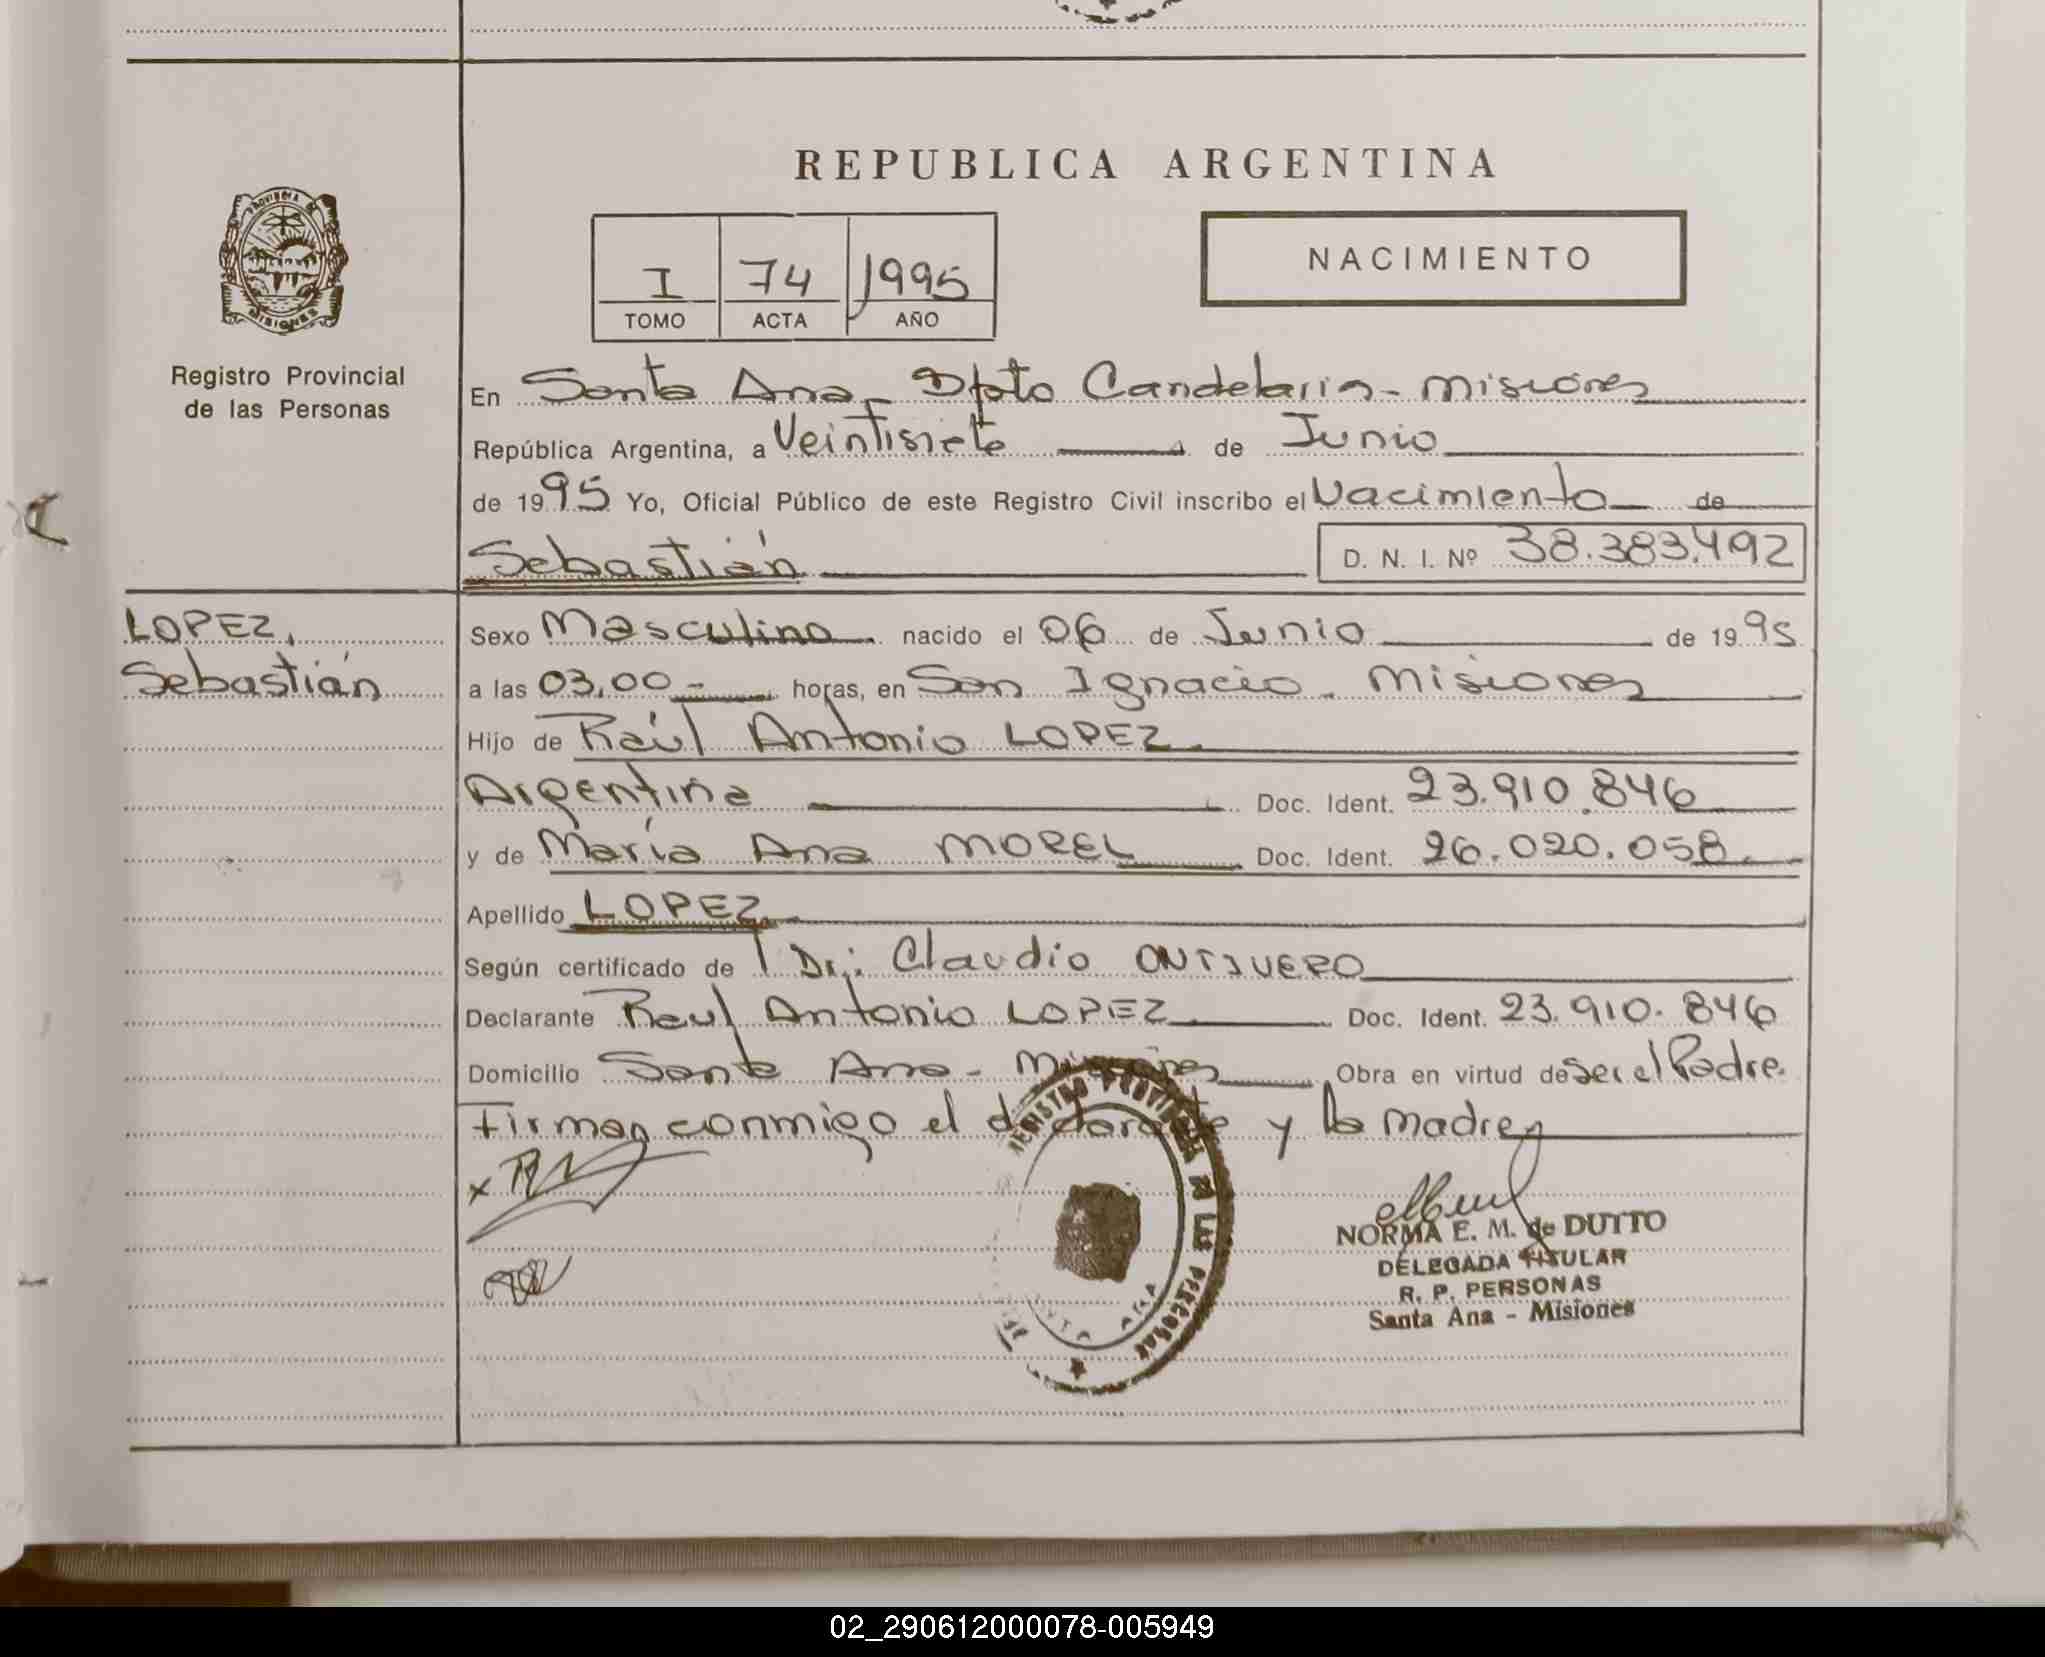 REPUBLICA ARGENTINA
PROVINCIA DE
MISIONES
Registro Provincial
de las Personas
I 74 1995
TOMO ACTA AÑO
NACIMIENTO
En Santa Ana - Dpto Candelaria - Misiones
República Argentina, a Veintisiete de Junio
de 1995 Yo, Oficial Público de este Registro Civil inscribo el Nacimiento de
Sebastián D. N. I. Nº 38.383.492
LOPEZ,
Sebastián
Sexo Masculino nacido el 06 de Junio de 1995
a las 03,00 - horas, en San Ignacio - Misiones
Hijo de Raúl Antonio LOPEZ
Argentina Doc. Ident. 23.910.846
y de María Ana MOREL Doc. Ident. 26.020.058
Apellido LOPEZ
Según certificado de Dr.: Claudio ONTIVERO
Declarante Raul Antonio LOPEZ Doc. Ident. 23.910.846
Domicilio Santa Ana - Misiones Obra en virtud de ser el Padre.
Firman conmigo el declarante y la madre
REGISTRO PROVINCIAL DE LAS PERSONAS
NORMA E. M. de DUTTO
DELEGADA TITULAR
R. P. PERSONAS
Santa Ana - Misiones
02_290612000078-005949